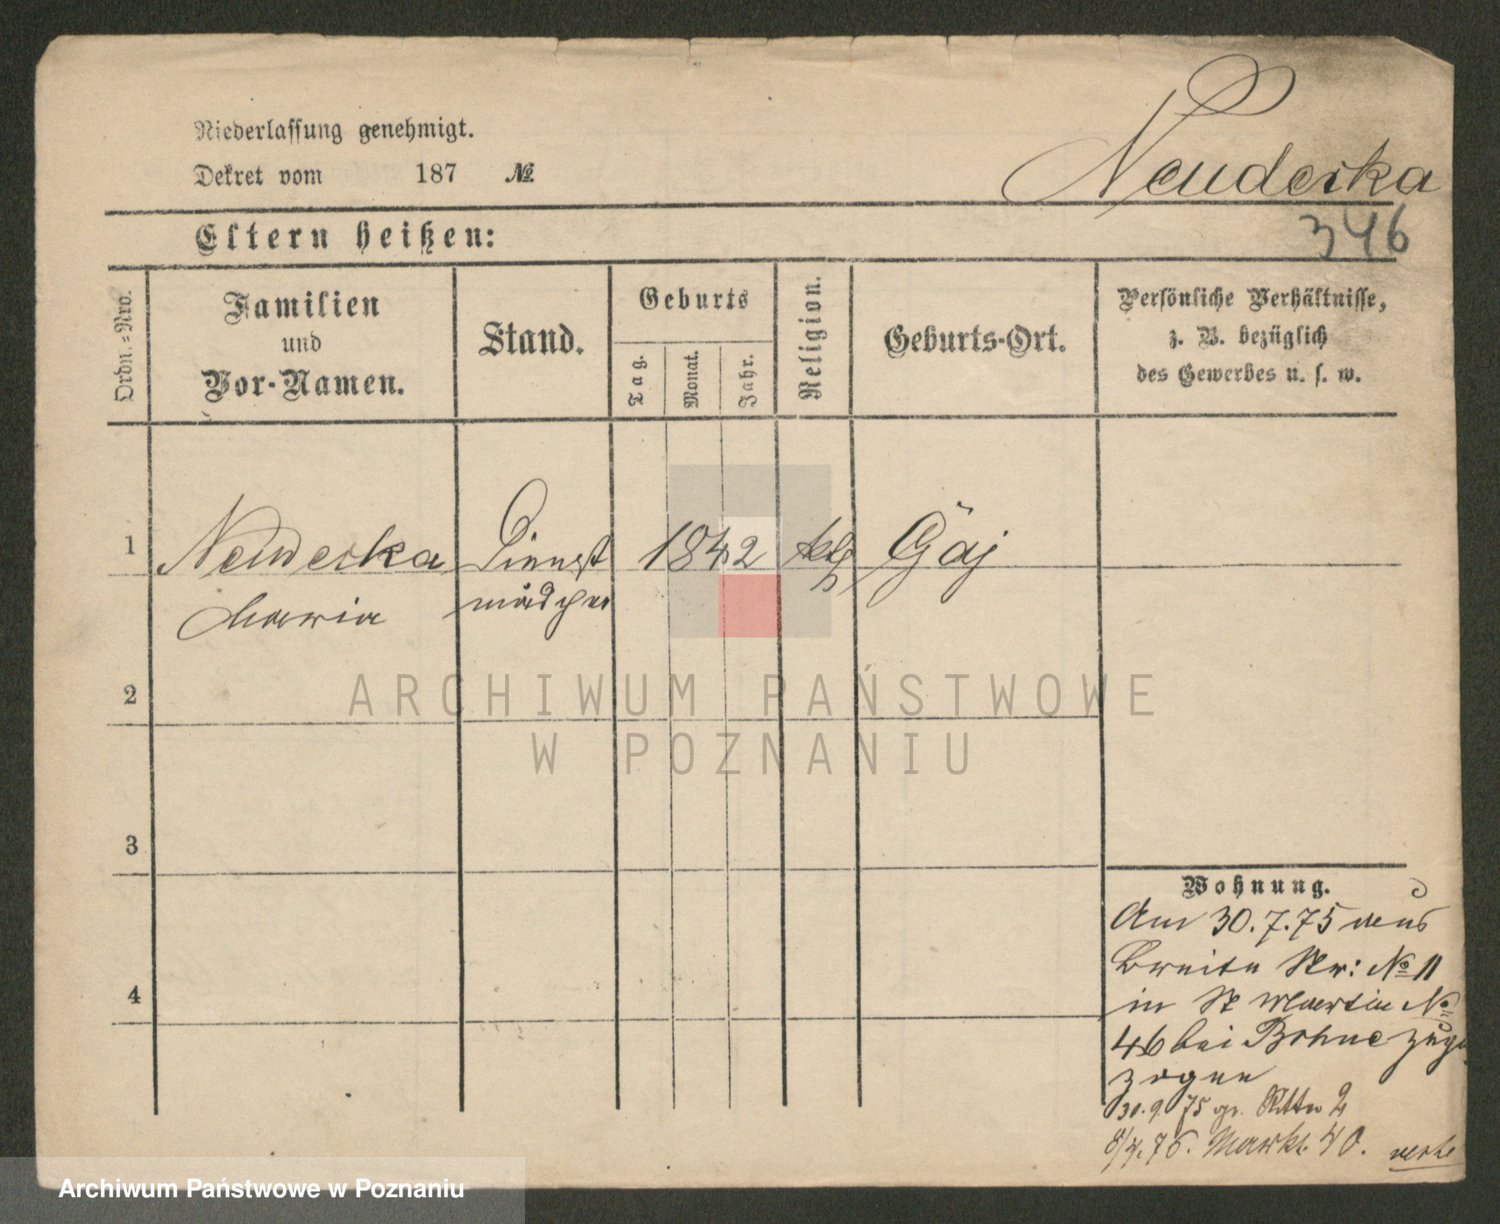 Niederlassung genehmigt.
Dekret vom 187 №
Neudecka
346
Eltern heißen:
Ordn.-Nro.
Familien
und
Vor-Namen.
Stand.
Geburts
Tag.
Monat.
Jahr.
Religion.
Geburts-Ort.
Persönliche Verhältnisse,
z. B. bezüglich
des Gewerbes u. s. w.
1
Neudecka
Dienst
1842
kth
Gaj
Maria
mädchen
2
ARCHIWUM PAŃSTWOWE
W POZNANIU
3
4
Wohnung.
Am 30.7.75 von
Breite Str: № 11
in St Martin №
46 bei Bohne zuge
zogen
30.9.75 gr. Ritter 2
8/4.76. Markt 40.
Archiwum Państwowe w Poznaniu